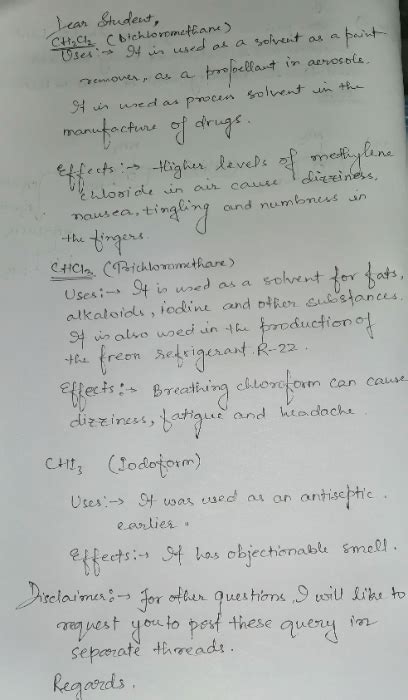 Dear Student,
CH2Cl2 (Dichloromethane)
Uses:→ It is used as a solvent as a paint
remover, as a propellant in aerosols.
It is used as process solvent in the
manufacture of drugs.
Effects:→ Higher levels of methylene
chloride in air cause dizziness,
nausea, tingling and numbness in
the fingers.
CHCl3. (Trichloromethane)
Uses:→ It is used as a solvent for fats,
alkaloids, iodine and other substances.
It is also used in the production of
the freon refrigerant R-22.
Effects:→ Breathing chloroform can cause
dizziness, fatigue and headache.
CHI3 (Iodoform)
Uses:→ It was used as an antiseptic
earlier.
Effects:→ It has objectionable smell.
Disclaimer:→ For other questions I will like to
request you to post these query in
separate threads.
Regards.